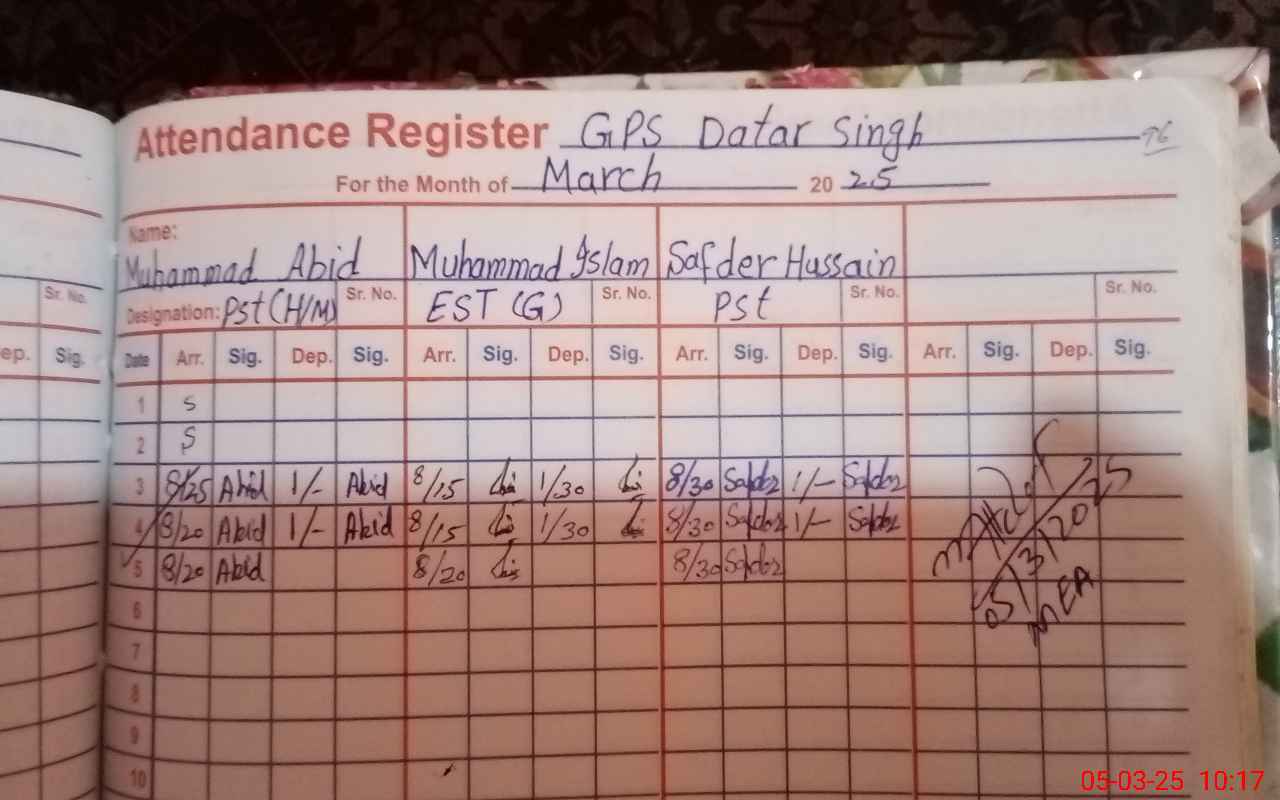 Attendance Register GPS Datar Singh
For the Month of March 20 25
Name:
Muhammad Abid Muhammad Islam Safder Hussain
Sr. No. Designation: Pst (H/M) Sr. No. EST (G) Sr. No. Pst Sr. No. Sr. No.
ep. Sig. Date Arr. Sig. Dep. Sig. Arr. Sig. Dep. Sig. Arr. Sig. Dep. Sig. Arr. Sig. Dep. Sig.
1 S
2 S
3 8/25 Abid 1/- Abid 8/15 1/30 8/30 Safder 1/- Safder
4 8/20 Abid 1/- Abid 8/15 1/30 8/30 Safder 1/- Safder
5 8/20 Abid 8/20 8/30 Safder
05/3/2025
MEA
6
7
8
9
10
05-03-25 10:17